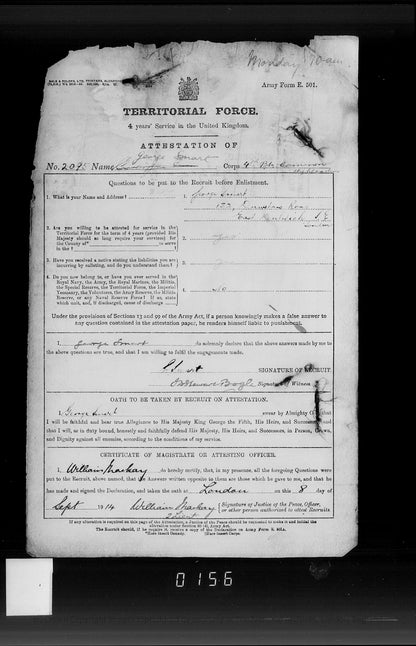 Monday 10 am
Army Form E. 501.
TERRITORIAL FORCE.
4 years' Service in the United Kingdom.
ATTESTATION OF
George Smart
No. 2095 Name Corps 4th Bn
Questions to be put to the Recruit before Enlistment.
1. What is your Name and Address?
1. George Smart
East S.E.
London
2. Are you willing to be attested for service in the
Territorial Force for the term of 4 years (provided His
Majesty should so long require your services) for
the County of to serve
in the
2. Yes
3. Have you received a notice stating the liabilities you are
incurring by enlisting, and do you understand them?
3.
4. Do you now belong to, or have you ever served in the
Royal Navy, the Army, the Royal Marines, the Militia,
the Special Reserve, the Territorial Force, the Imperial
Yeomanry, the Volunteers, the Army Reserve, the Militia
Reserve, or any Naval Reserve Force? If so, state
which unit, and, if discharged, cause of discharge
4. No
Under the provisions of Sections 13 and 99 of the Army Act, if a person knowingly makes a false answer to
any question contained in the attestation paper, he renders himself liable to punishment.
I, George Smart do solemnly declare that the above answers made by me to
the above questions are true, and that I am willing to fulfil the engagements made.
G Smart SIGNATURE OF RECRUIT.
Signature of Witness.
OATH TO BE TAKEN BY RECRUIT ON ATTESTATION.
I, George Smart swear by Almighty God that
I will be faithful and bear true Allegiance to His Majesty King George the Fifth, His Heirs, and Successors, and
that I will, as in duty bound, honestly and faithfully defend His Majesty, His Heirs, and Successors, in Person, Crown,
and Dignity against all enemies, according to the conditions of my service.
CERTIFICATE OF MAGISTRATE OR ATTESTING OFFICER.
I, William Mackay do hereby certify, that, in my presence, all the foregoing Questions were
put to the Recruit, above named, that the Answers written opposite to them are those which he gave to me, and that he
has made and signed the Declaration, and taken the oath at London on this 8 day of
Sept 1914 William Mackay
Signature of Justice of the Peace, Officer,
or other person authorized to attest Recruits
2 Lieut
If any alteration is required on this page of the Attestation, a Justice of the Peace should be requested to make it and initial the
alteration under Section 80 (6), Army Act.
The Recruit should, if he require it, receive a copy of the Declaration on Army Form E. 501A.
*Here insert County. †Here insert Corps.
0156